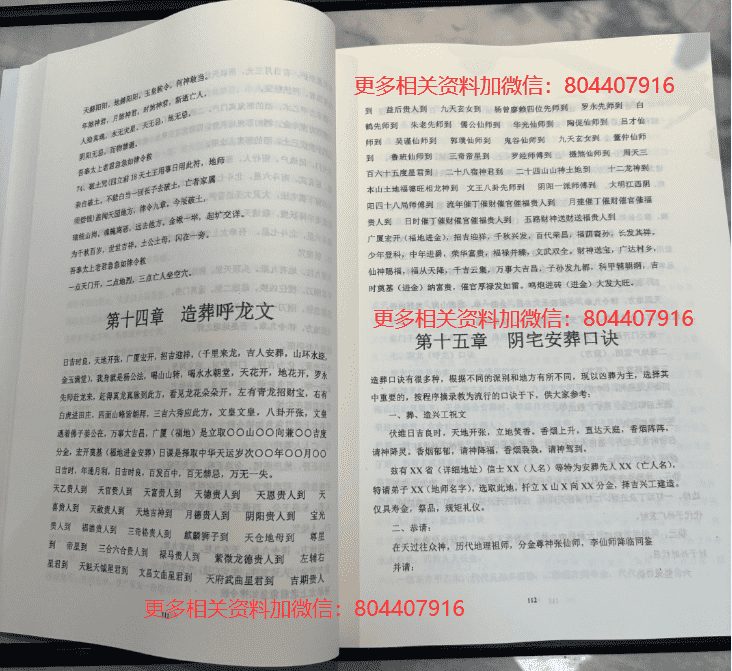 天赫阳阳，地赫阴阴，玉皇敕令，何神敢当。
年煞神君，月煞神君，时煞神君，斯逝亡人。
人给真魂，水无灾星，天无忌，地无忌，
阴阳无忌，百物禁避。
吾奉太上老君急急如律令敕
74、破土咒(四立前 18 天土王用事日用此符，地师
亲自破土，不能白当一回长子去破土，亡者家属
天圆地方，律令九章，今吾破土，
瑞杖山岗，魂魄离溶，远去他方，金锹一坏，起圹交泽，
为千秋百岁，世发吉祥，土公土母，闪在一旁。
吾奉太上老君急急如律令敕
一点天门开，二点地烈，三点亡人坐空穴。
第十四章 造葬呼龙文
日吉时良，天地开张，广厦宏开，招吉迎祥，（千里来龙，吉人安葬，山环水绕，
金玉满堂），我身就是杨公法，喝山山转，喝水水朝堂，天花开，地花开，罗永
先师赴龙来，赶得真龙真脉到此方，看见龙花朵朵开，左有青龙招财宝，右有
白虎进田庄，四面山峰皆朝拜，三吉六秀应此方，文臬文皇，八卦开张，文臬
遇着佛子姜公在，万事大吉昌，广厦（福地）是立取〇〇山〇〇向兼〇〇吉度
分金，宏开奠基（福地进金安葬）日课是择取中华天运岁次〇〇年〇〇月〇〇
日吉时，年通月利，日吉时良，百发百中，百无禁忌，万无一失。
天乙贵人到 天官贵人到 天富贵人到 天德贵人到 天恩贵人到 天
喜贵人到 天赦贵人到 天地吉神到 月德贵人到 阴阳贵人到 宝光
贵人到 福德贵人到 三奇格贵人到 麒麟狮子到 天仓地母到 尊星
到 帝星到 三台六合贵人到 禄马贵人到 紫微龙德贵人到 左辅右
星君到 天魁天钺星君到 文昌文曲星君到 天府武曲星君到 吉期贵人
111
更多相关资料加微信：804407916
到 益后贵人到 九天玄女到 杨曾廖赖四位先师到 罗永先师到 白
鹤先师到 朱老先师到 儒公仙师到 华光仙师到 陶侃仙师到 吕才仙
师到 吴谨仙师到 郭璞仙师到 鬼谷仙师到 九天玄女到 董仲仙师
到 鲁班仙师到 三奇帝星到 罗经师傅到 缀煞仙师到 周天三
百六十五度星君到 二十八宿神君到 二十四山山神土地到 十二龙神到
本山土地福德旺相龙神到 文王八卦先师到 阴阳一派师傅到 大明江西阴
阳四十八局师傅到 流年催丁催财催官催福贵人到 月建催丁催财催官催福
贵人到 日时催丁催财催官催福贵人到 五路财神送财送福贵人到
广厦宏开（福地进金），招吉迎祥，千秋兴发，百代荣昌，福荫裔孙，长发其祥，
少年登科，中年进爵，荣华富贵，福禄并臻，文武双全，财神送宝，广达村乡，
仙神赐福，福从天降，千吉云集，万事大吉昌，子孙发九都，科甲蝉联绸，吉
时奠基（进金）纳富贵，催官厚禄发如雷，鸣炮进砖（进金）大发大旺。
更多相关资料加微信：804407916
第十五章 阴宅安葬口诀
造葬口诀有很多种，根据不同的派别和地方有所不同，现以凶葬为主，选择其
中重要的，按程序摘录数为流行的口诀于下，供大家参考：
一、葬、造兴工祝文
伏维日吉良时，天地开张，立地焚香，香烟上升，直达天庭，香烟阵阵，
请神降灵，香烟郁郁，请神降福，香烟袅袅，请神驾到。
兹有 XX 省（详细地址）信士 XX（人名）等特为安葬先人 XX（亡人名），
特请弟子 XX（地师名字），选取此地，扦立 X 山 X 向 XX 分金，择吉兴工建造。
仅具寿金，祭品，规矩礼仪。
二、恭请：
在天过往众神，历代地理祖师，分金尊神张仙师，李仙师降临同鉴
并请：
112
更多相关资料加微信：804407916